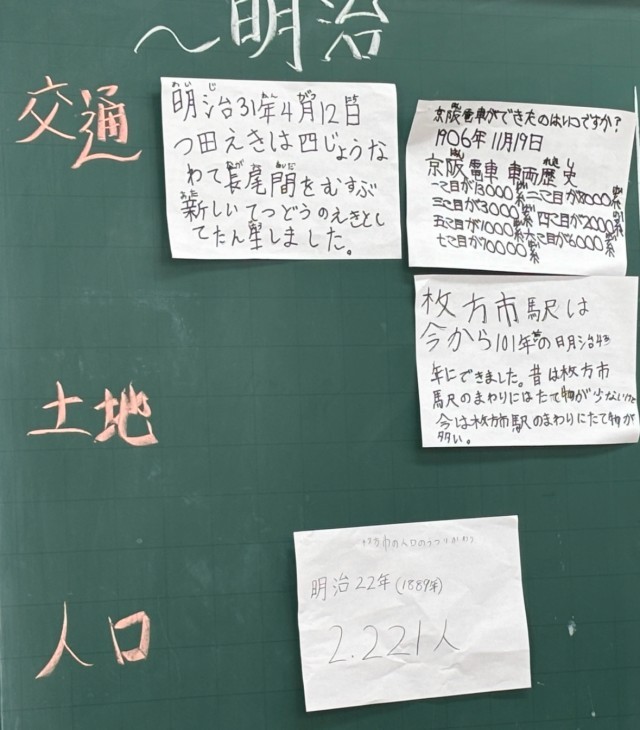 ～明治
交通
明治31年4月12日
つ田えきは四じょうな
わて長尾間をむすぶ
新しいてつどうのえきとし
てたん生しました。
京阪電車ができたのはいつですか?
1906年 11月19日
京阪電車 車両歴史
一つ目が13000系 二つ目が8000系
三つ目が3000系 四つ目が2000系
五つ目が1000系 六つ目が6000系
七つ目が10000系
枚方市駅は
今から101年前の日明治43
年にできました。昔は枚方市
駅のまわりにはたて物が少ないけど
今は枚方市駅のまわりにたて物が
多い。
土地
人口
明治22年(1889年)
2.221人